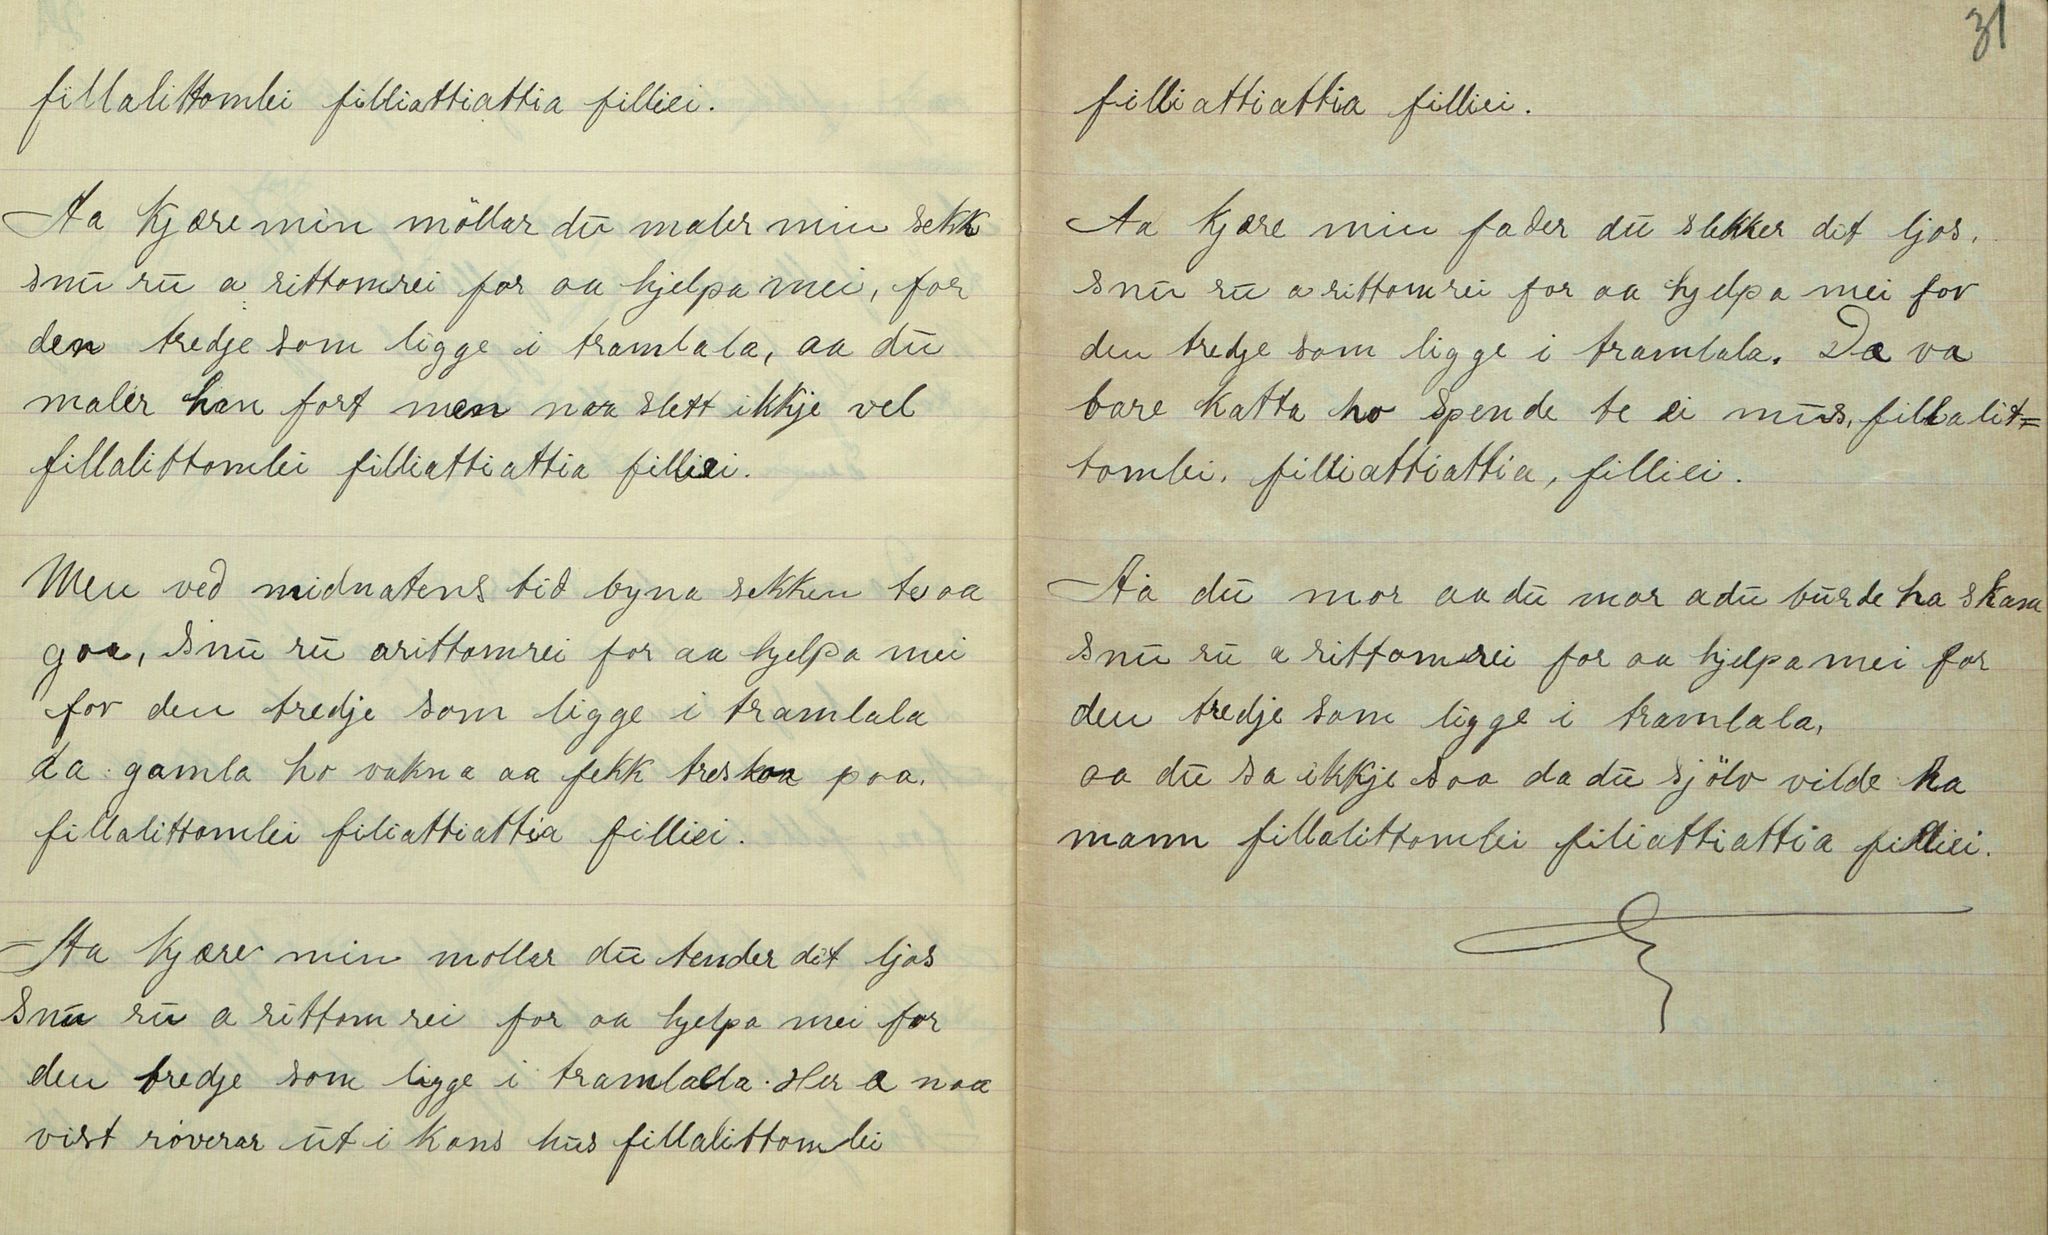 fillalittomlei filliattiattia filliei.
Aa kjære min möllar dū maler min sekk
snū rū a rittomrei for aa hjelpa mei, for
den tredje som ligge i tramlala, aa dū
maler han fort men naa slett ikkje vel
fillalittomlei filliattiattia filliei.
Men ved midnatens tid byna sekken te aa
goa, snū rū arittomrei for aa hjelpa mei
for den tredje som ligge i tramlala
da gamla ho vakna aa fekk treskoa paa.
fillalittomlei filiattiattia filliei.
Aa kjære min mollar dū tender dit ljos
snū rū a rittomrei for aa hjelpa mei for
den tredje som ligge i tramlalla. Her æ naa
vist röverar ūt i Kans hūs fillalittomlei
31
filliattiattia filliei.
Aa kjære min fader dū slekker dit ljos.
snū rū a rittomrei for aa hjelpa mei for
den tredje som ligge i tramlala. Dæ va
bare Katta ho spende te ei mūs, fillalit=
tomlei, filliattiattia, filliei.
Aa dū mor aa dū mor a dū būrde ha skam
snū rū a rittomrei for aa hjelpa mei for
den tredje som ligge i tramlala,
aa dū sa ikkje saa da dū sjölv vilde ha
mann fillalittomlei filiattiattia filliei.